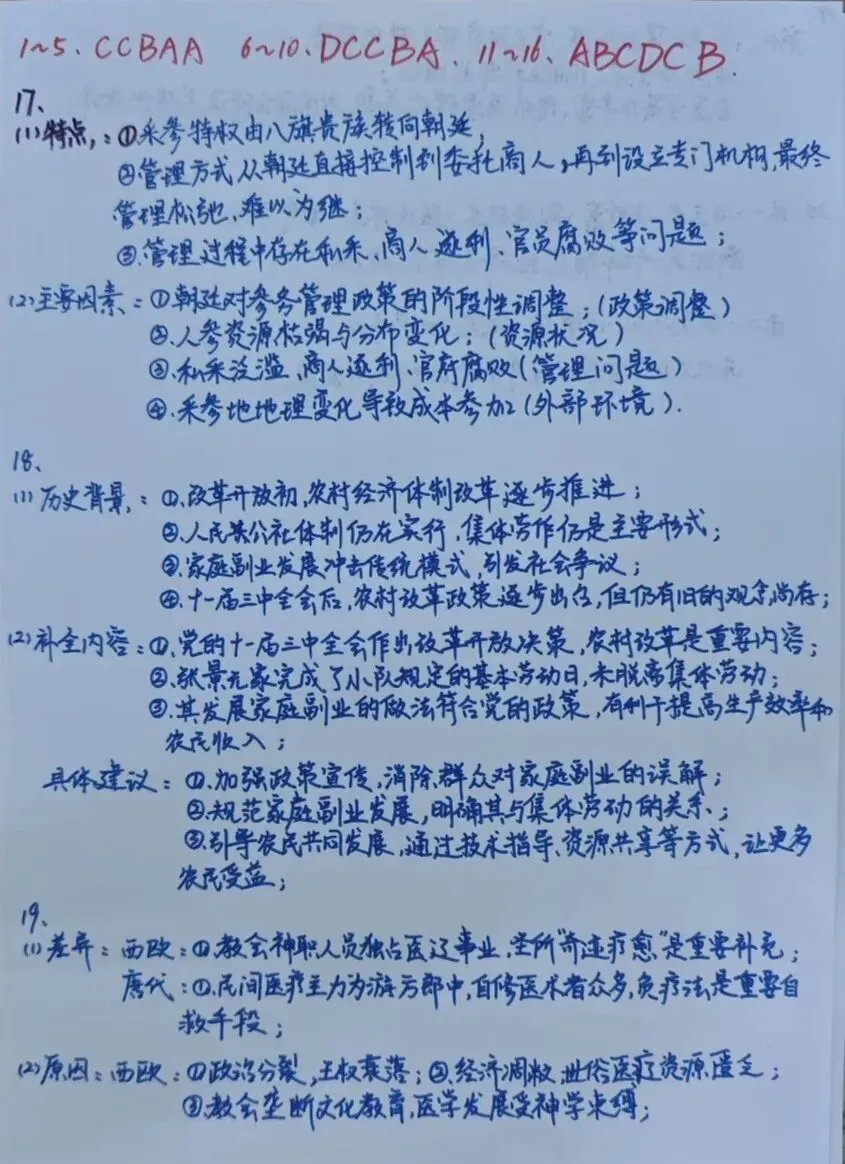 1~5. CCBAA 6~10. DCCBA. 11~16. ABCDCB.
17、
(1)特点:①采参特权由八旗贵族转向朝廷;
②管理方式从朝廷直接控制到委托商人,再到设立专门机构,最终
管理松弛,难以为继;
③.管理过程中存在私采、商人逐利、官员腐败等问题;
(2)主要因素:①朝廷对参务管理政策的阶段性调整;(政策调整)
②.人参资源枯竭与分布变化;(资源状况)
③.私采泛滥、商人逐利、官府腐败(管理问题)
④.采参地地理变化导致成本参加(外部环境).
18、
(1)历史背景:①.改革开放初,农村经济体制改革逐步推进;
②.人民公社体制仍在实行,集体劳作仍是主要形式;
③.家庭副业发展冲击传统模式,引发社会争议;
④.十一届三中全会后,农村改革政策逐步出台,但仍有旧的观念尚存;
(2)补全内容:①.党的十一届三中全会作出改革开放决策,农村改革是重要内容;
②.张景元家完成了小队规定的基本劳动日,未脱离集体劳动;
③.其发展家庭副业的做法符合党的政策,有利于提高生产效率和
农民收入;
具体建议:①.加强政策宣传,消除群众对家庭副业的误解;
②.规范家庭副业发展,明确其与集体劳动的关系;
③.引导农民共同发展,通过技术指导、资源共享等方式,让更多
农民受益;
19、
(1)差异:西欧:①.教会神职人员独占医疗事业,圣所"奇迹疗愈"是重要补充;
唐代:①.民间医疗主力为游方郎中,自修医术者众多,食疗法是重要自
救手段;
(2)原因:西欧:①政治分裂,王权衰落;②.经济凋敝,世俗医疗资源匮乏;
③.教会垄断文化教育,医学发展受神学束缚;